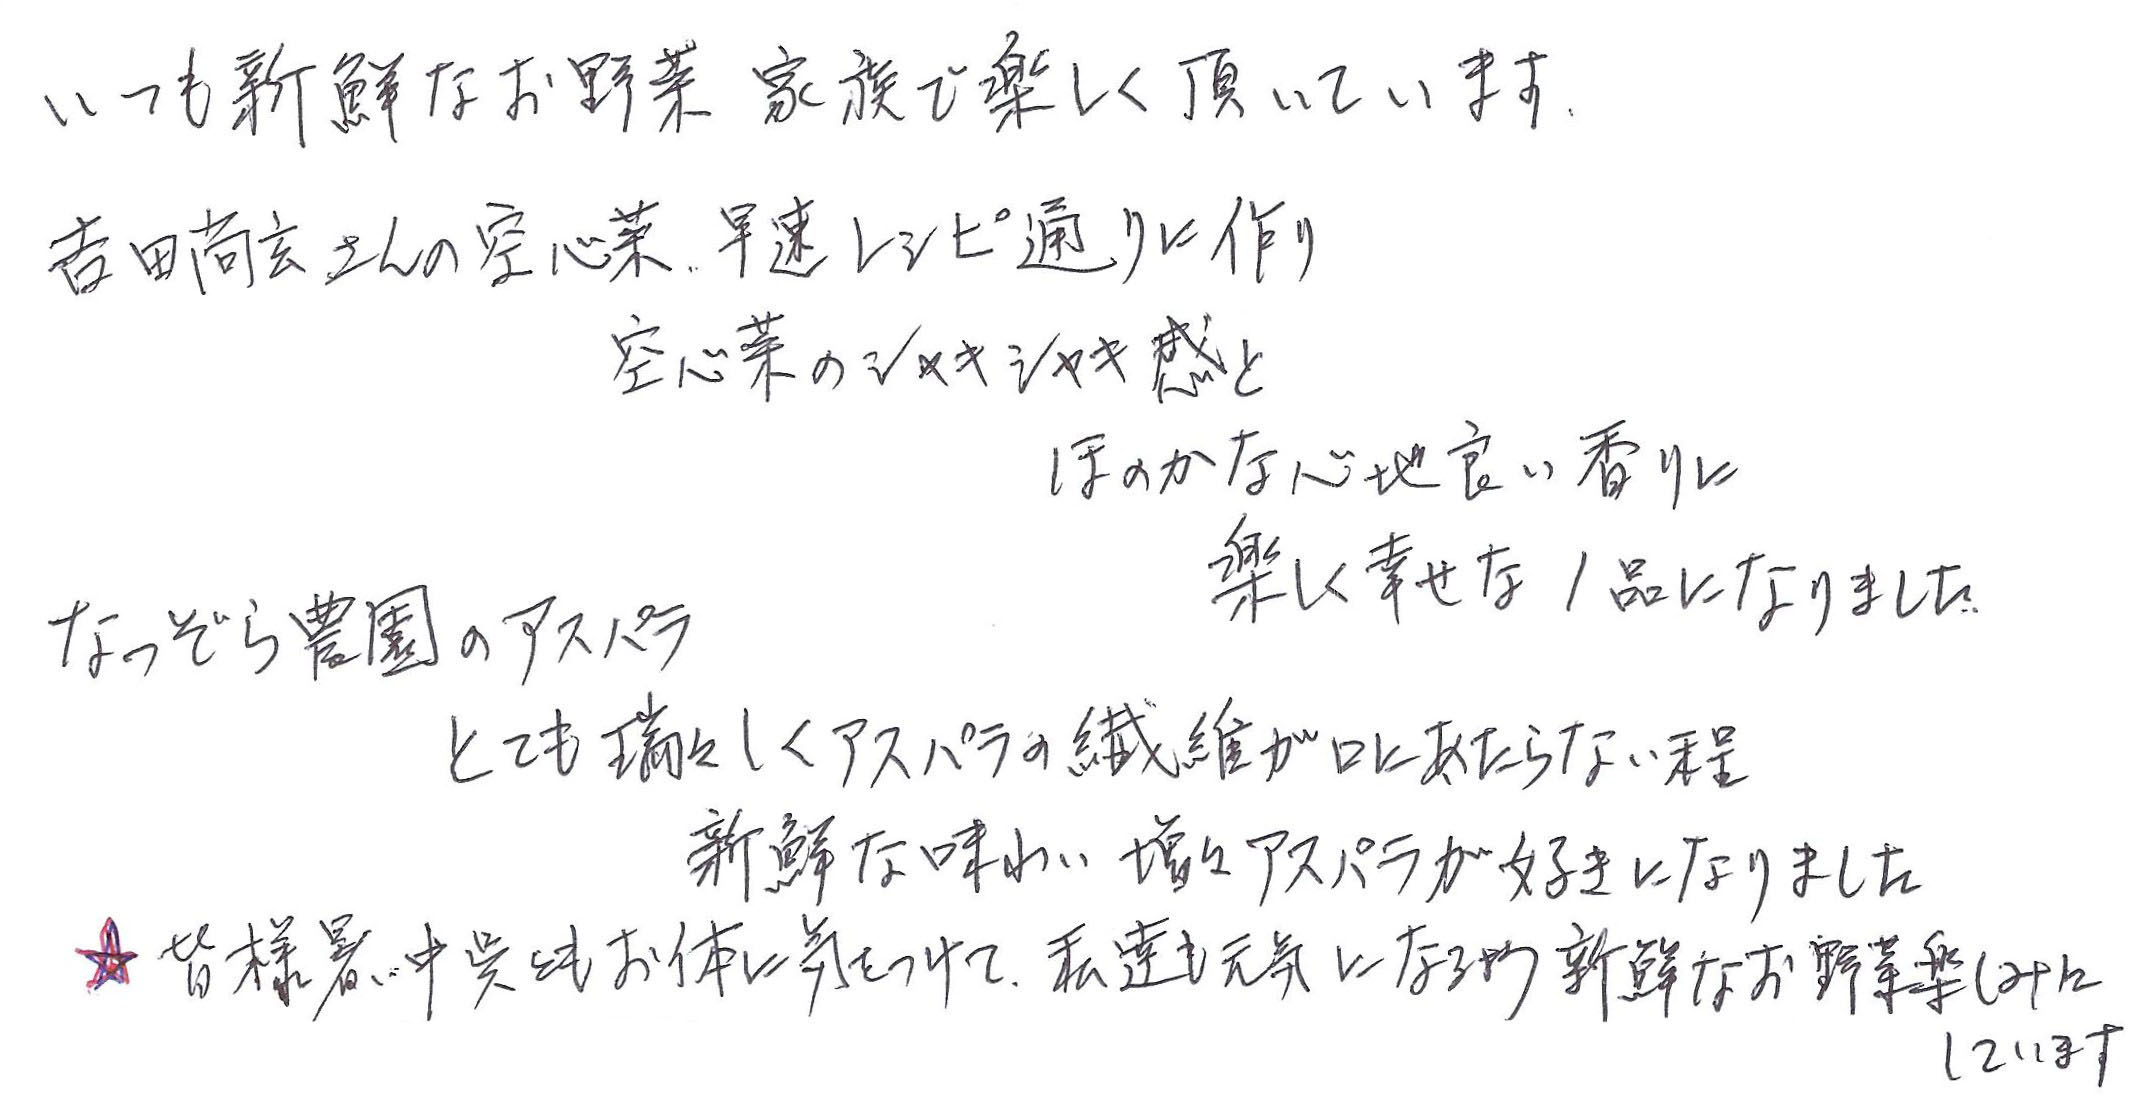 いつも新鮮なお野菜 家族で楽しく頂いています.
吉田尚玄さんの空心菜.早速レシピ通りに作り
空心菜のシャキシャキ感と
ほのかな心地良い香りに
楽しく幸せな1品になりました.
なつぞら農園のアスパラ
とても瑞々しくアスパラの繊維が口にあたらない程
新鮮な味わい 増々アスパラが好きになりました
★皆様暑い中呉ともお体に気をつけて.私達も元気になる 新鮮なお野菜楽しみに
しています